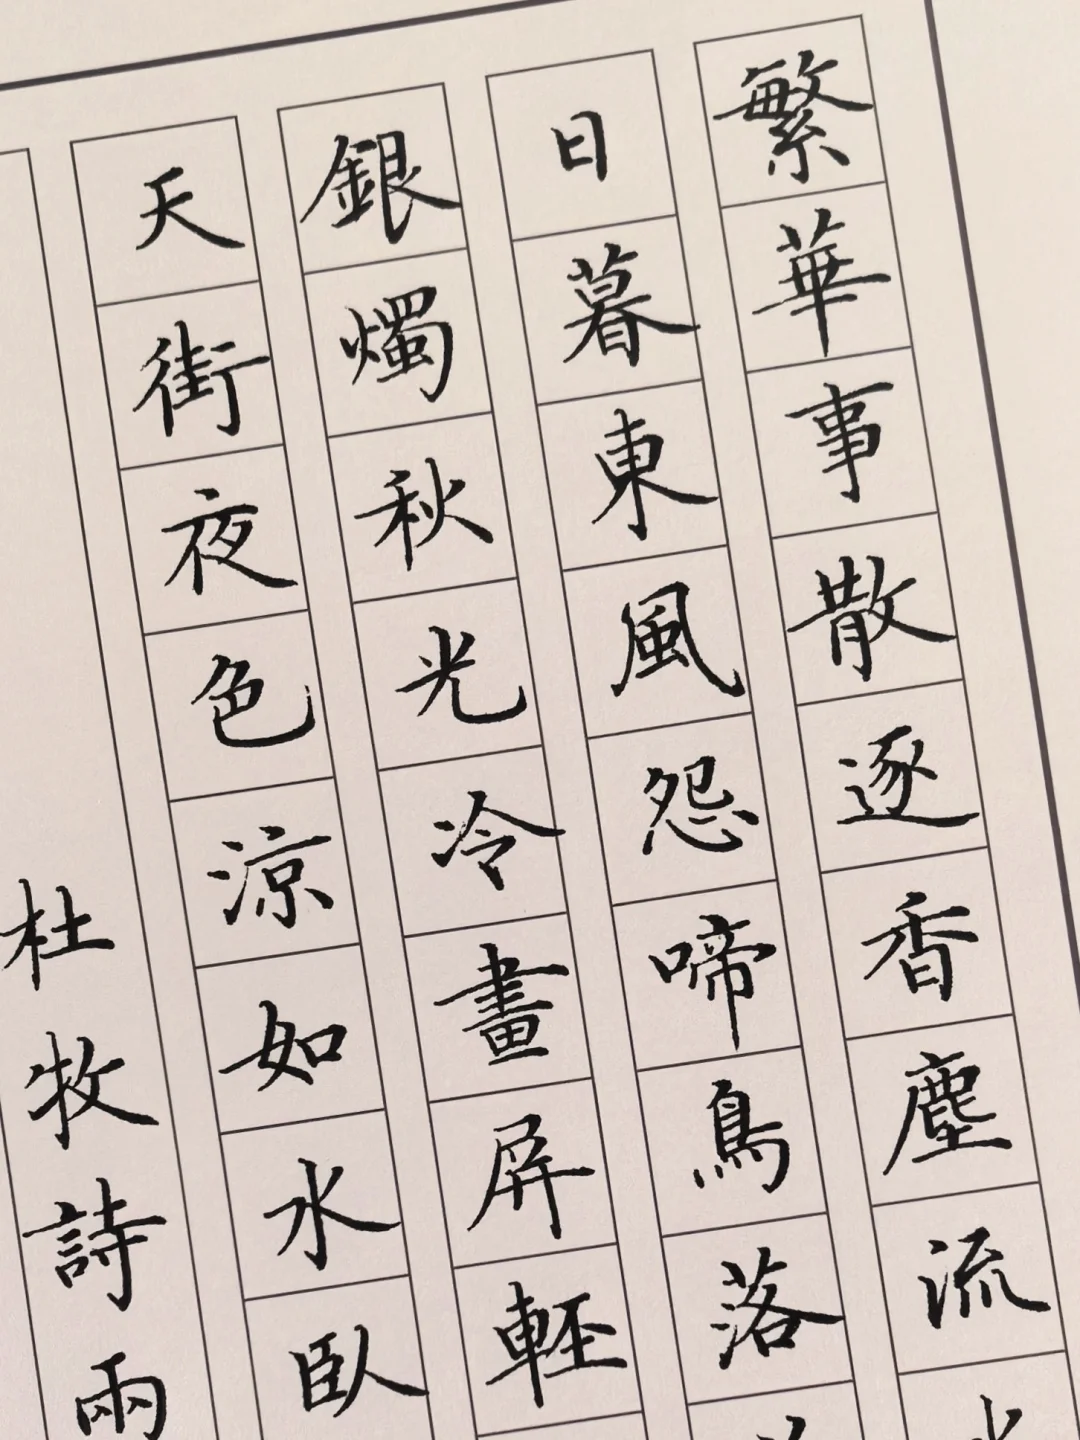 繁華事散逐香塵流
日暮東風怨啼鳥落
銀燭秋光冷畫屏輕
天街夜色涼如水臥
杜牧詩兩